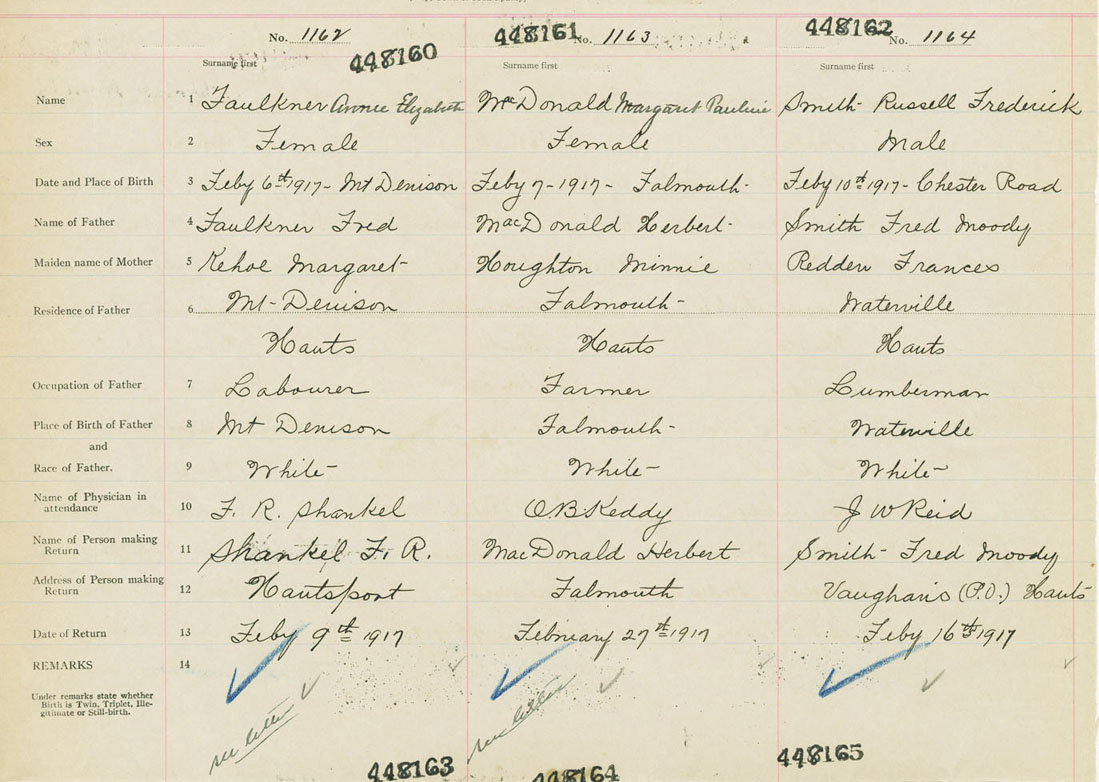 No. 1162 448161 No. 1163 448162 No. 1164
448160
Surname first Surname first Surname first
Name 1 Faulkner Annie Elizabeth McDonald Margaret Pauline Smith Russell Frederick
Sex 2 Female Female Male
Date and Place of Birth 3 Feby 6th 1917 - Mt Denison Feby 7 - 1917 - Falmouth Feby 10th 1917 - Chester Road
Name of Father 4 Faulkner Fred MacDonald Herbert Smith Fred Moody
Maiden name of Mother 5 Kehoe Margaret Houghton Minnie Redden Frances
Residence of Father 6 Mt Denison Falmouth Waterville
Hants Hants Hants
Occupation of Father 7 Labourer Farmer Lumberman
Place of Birth of Father 8 Mt Denison Falmouth Waterville
and
Race of Father. 9 White White White
Name of Physician in
attendance 10 F. R. Shankel O.B Keddy J W Reid
Name of Person making
Return 11 Shankel F. R. MacDonald Herbert Smith Fred Moody
Address of Person making
Return 12 Hantsport Falmouth Vaughan's (P.O.) Hants
Date of Return 13 Feby 9th 1917 February 27th 1917 Feby 16th 1917
REMARKS 14
Under remarks state whether
Birth is Twin, Triplet, Ille-
gitimate or Still-birth.
see letter see letter
448163 448164 448165